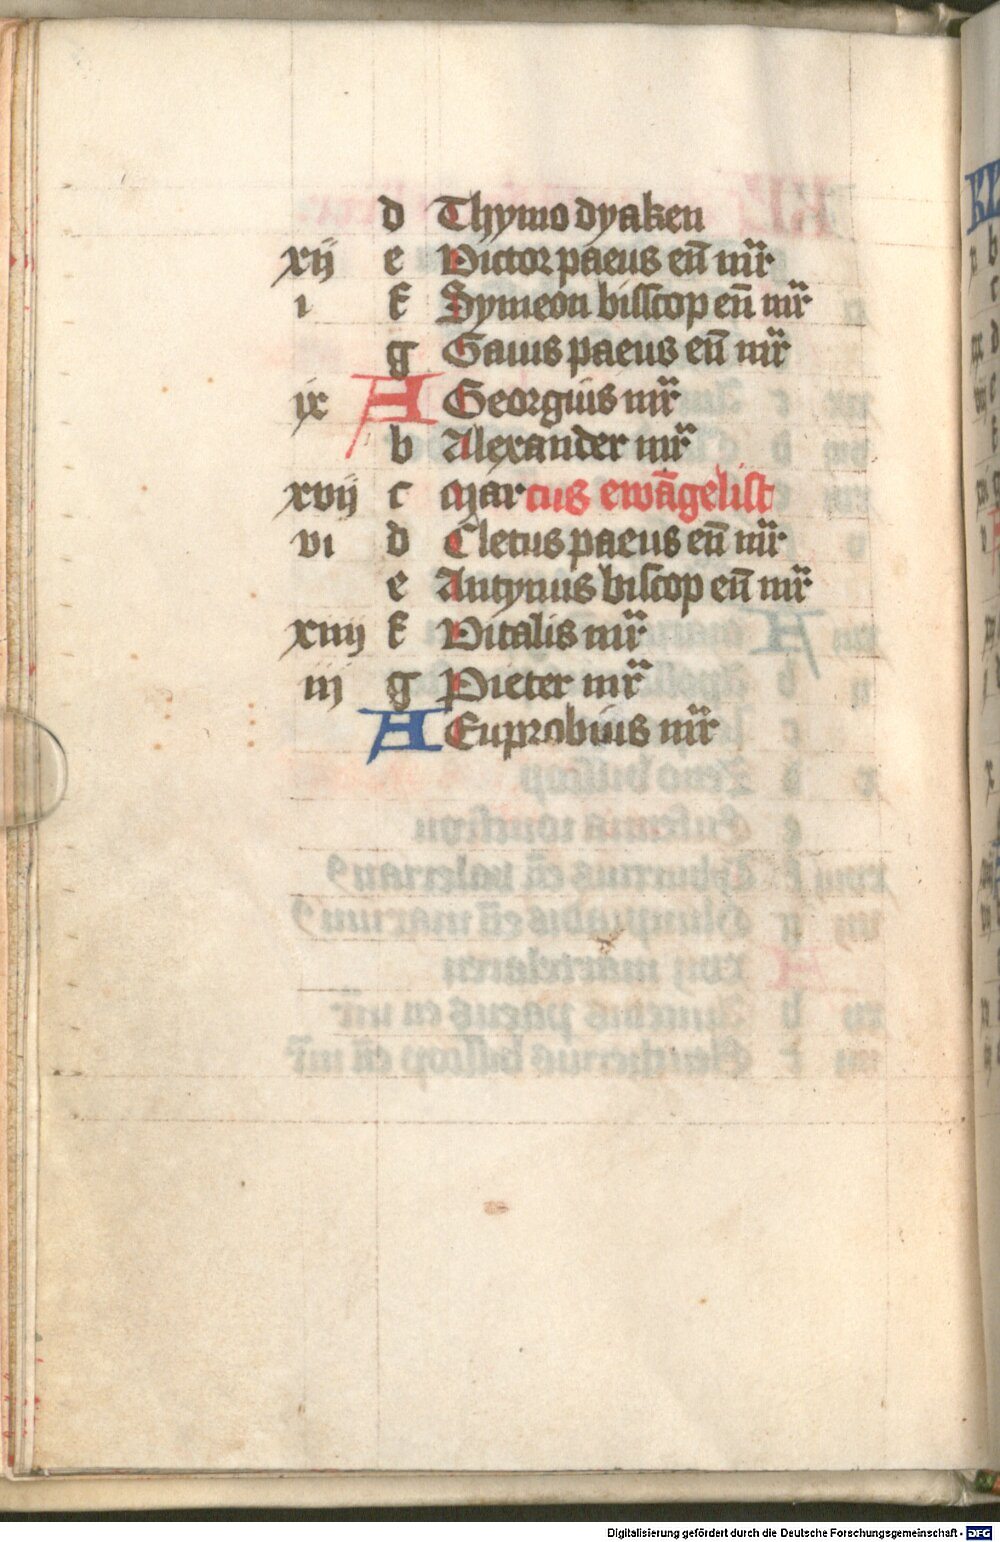 d Thymo dyaken
xij e Victor paeus en̄ mr̄
i f Symeon bisscop en̄ mr̄
g Gaius paeus en̄ mr̄
ix A Georgius mr̄
b Alexander mr̄
xvij c Marcus ewāgelist
vi d Cletus paeus en̄ mr̄
e Antymus biscop en̄ mr̄
xiiij f Vitalis mr̄
iij g Pieter mr̄
A Euprobius mr̄
Digitalisierung gefördert durch die Deutsche Forschungsgemeinschaft - DFG